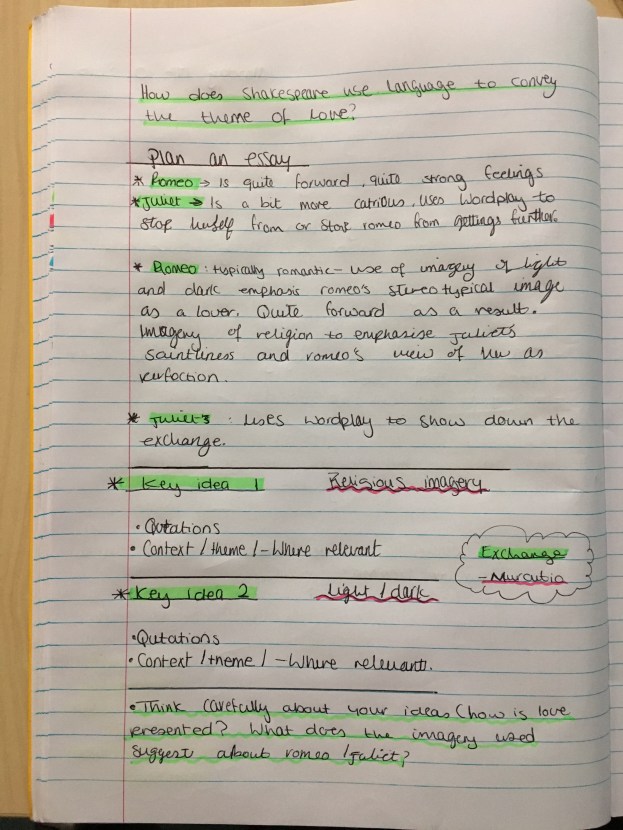 How does Shakespeare use language to convey
the theme of Love?
Plan an essay
* Romeo → Is quite forward, quite strong feelings
* Juliet → Is a bit more catrious, uses wordplay to
stop herself from or stop romeo from gettings further.
* Romeo : typically romantic - use of imagery of light
and dark emphasis romeo's stereotypical image
as a lover. Quite forward as a result.
Imagery of religion to emphasise Juliet's
saintliness and romeo's view of her as
perfection.
* Juliet's : uses wordplay to show down the
exchange.
* Key idea 1 Religious imagery
• Qutations
• Context / theme / - Where relevant
Exchange
- Murcutio
* Key idea 2 Light / dark
• Qutations
• Context / theme / - Where relevant.
• Think carefully about your ideas (how is love
presented? What does the imagery used
suggest about romeo / juliet?